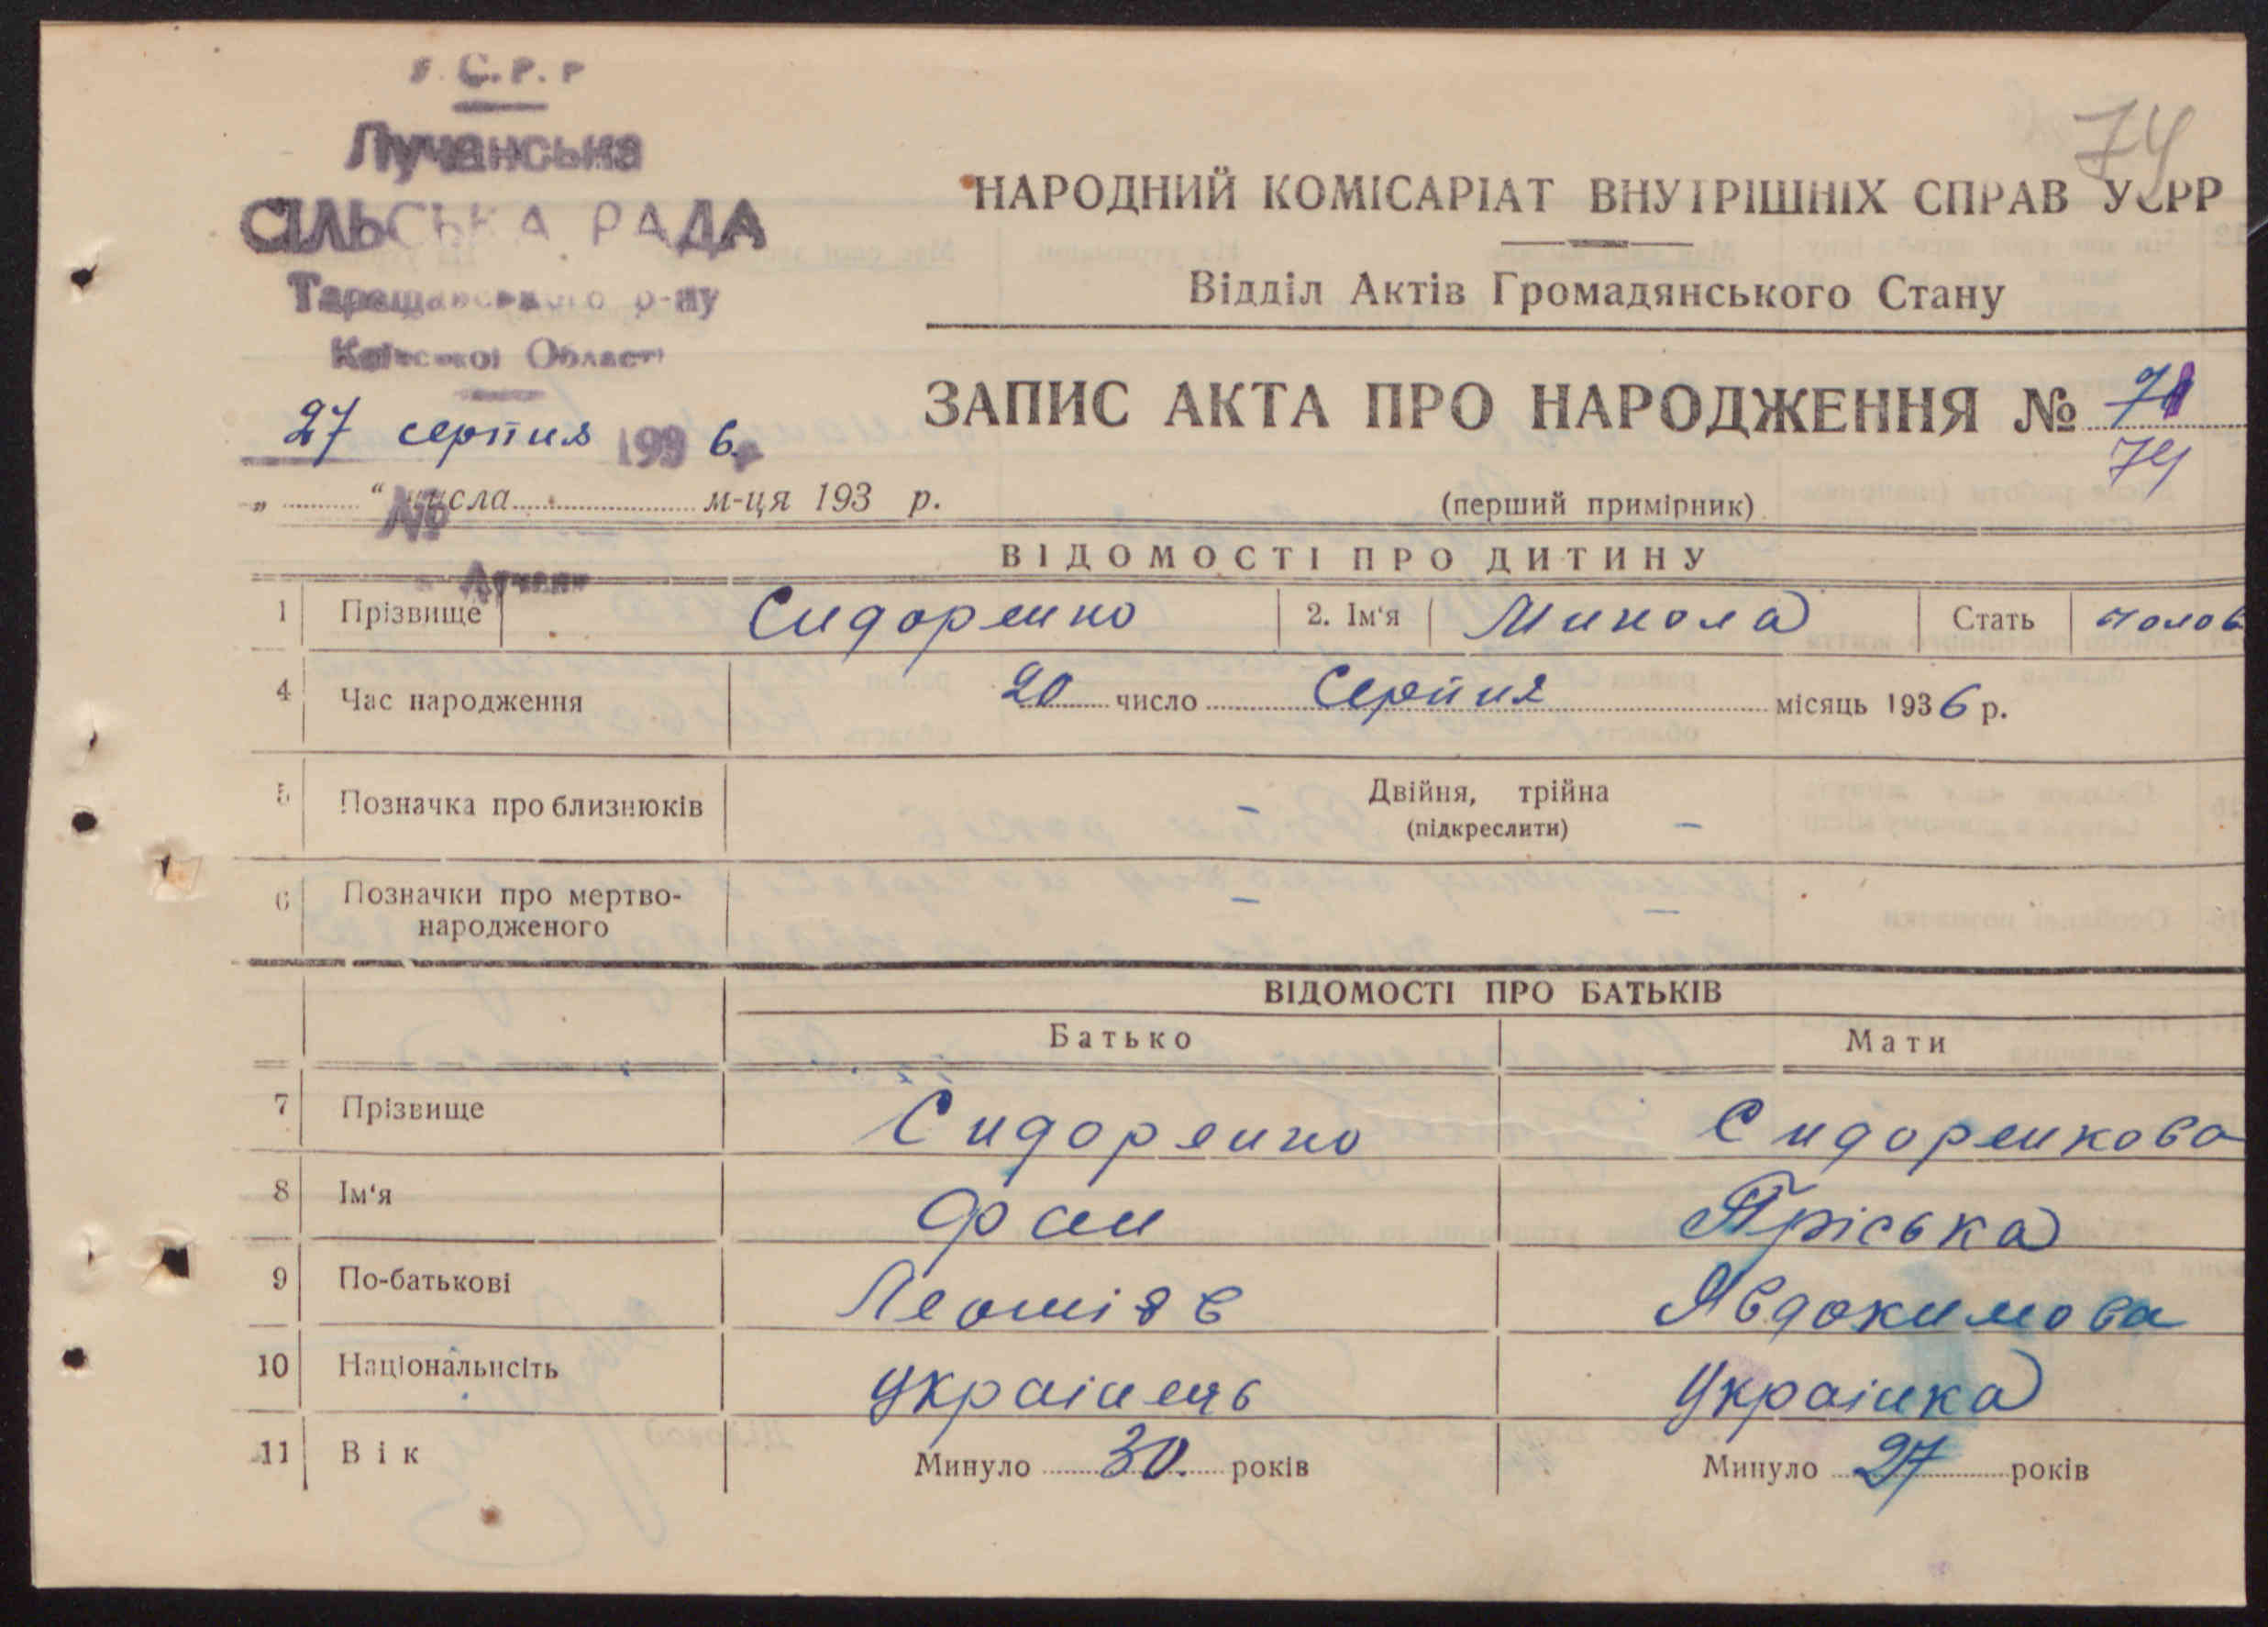 У.С.Р.Р
Лучанська
СІЛЬСЬКА РАДА
Таращанського р-ну
Київської Області
27 серпня 193 6 р
№
с. Лучани
74
НАРОДНИЙ КОМІСАРІАТ ВНУТРІШНІХ СПРАВ УСРР
Відділ Актів Громадянського Стану
ЗАПИС АКТА ПРО НАРОДЖЕННЯ № 71
74
„ “ числа м-ця 193 р.
(перший примірник)
ВІДОМОСТІ ПРО ДИТИНУ
1 Прізвище Сидоренко 2. Ім‘я Микола Стать чолов
4 Час народження 20 число Серпня місяць 1936 р.
5 Позначка про близнюків – Двійня, трійна –
(підкреслити)
6 Позначки про мертво- – –
народженого
ВІДОМОСТІ ПРО БАТЬКІВ
Батько Мати
7 Прізвище Сидоренко Сидоренкова
8 Ім‘я Пріська
9 По-батькові Явдокимова
10 Національність Україиець Українка
11 Вік Минуло 30 років Минуло 27 років